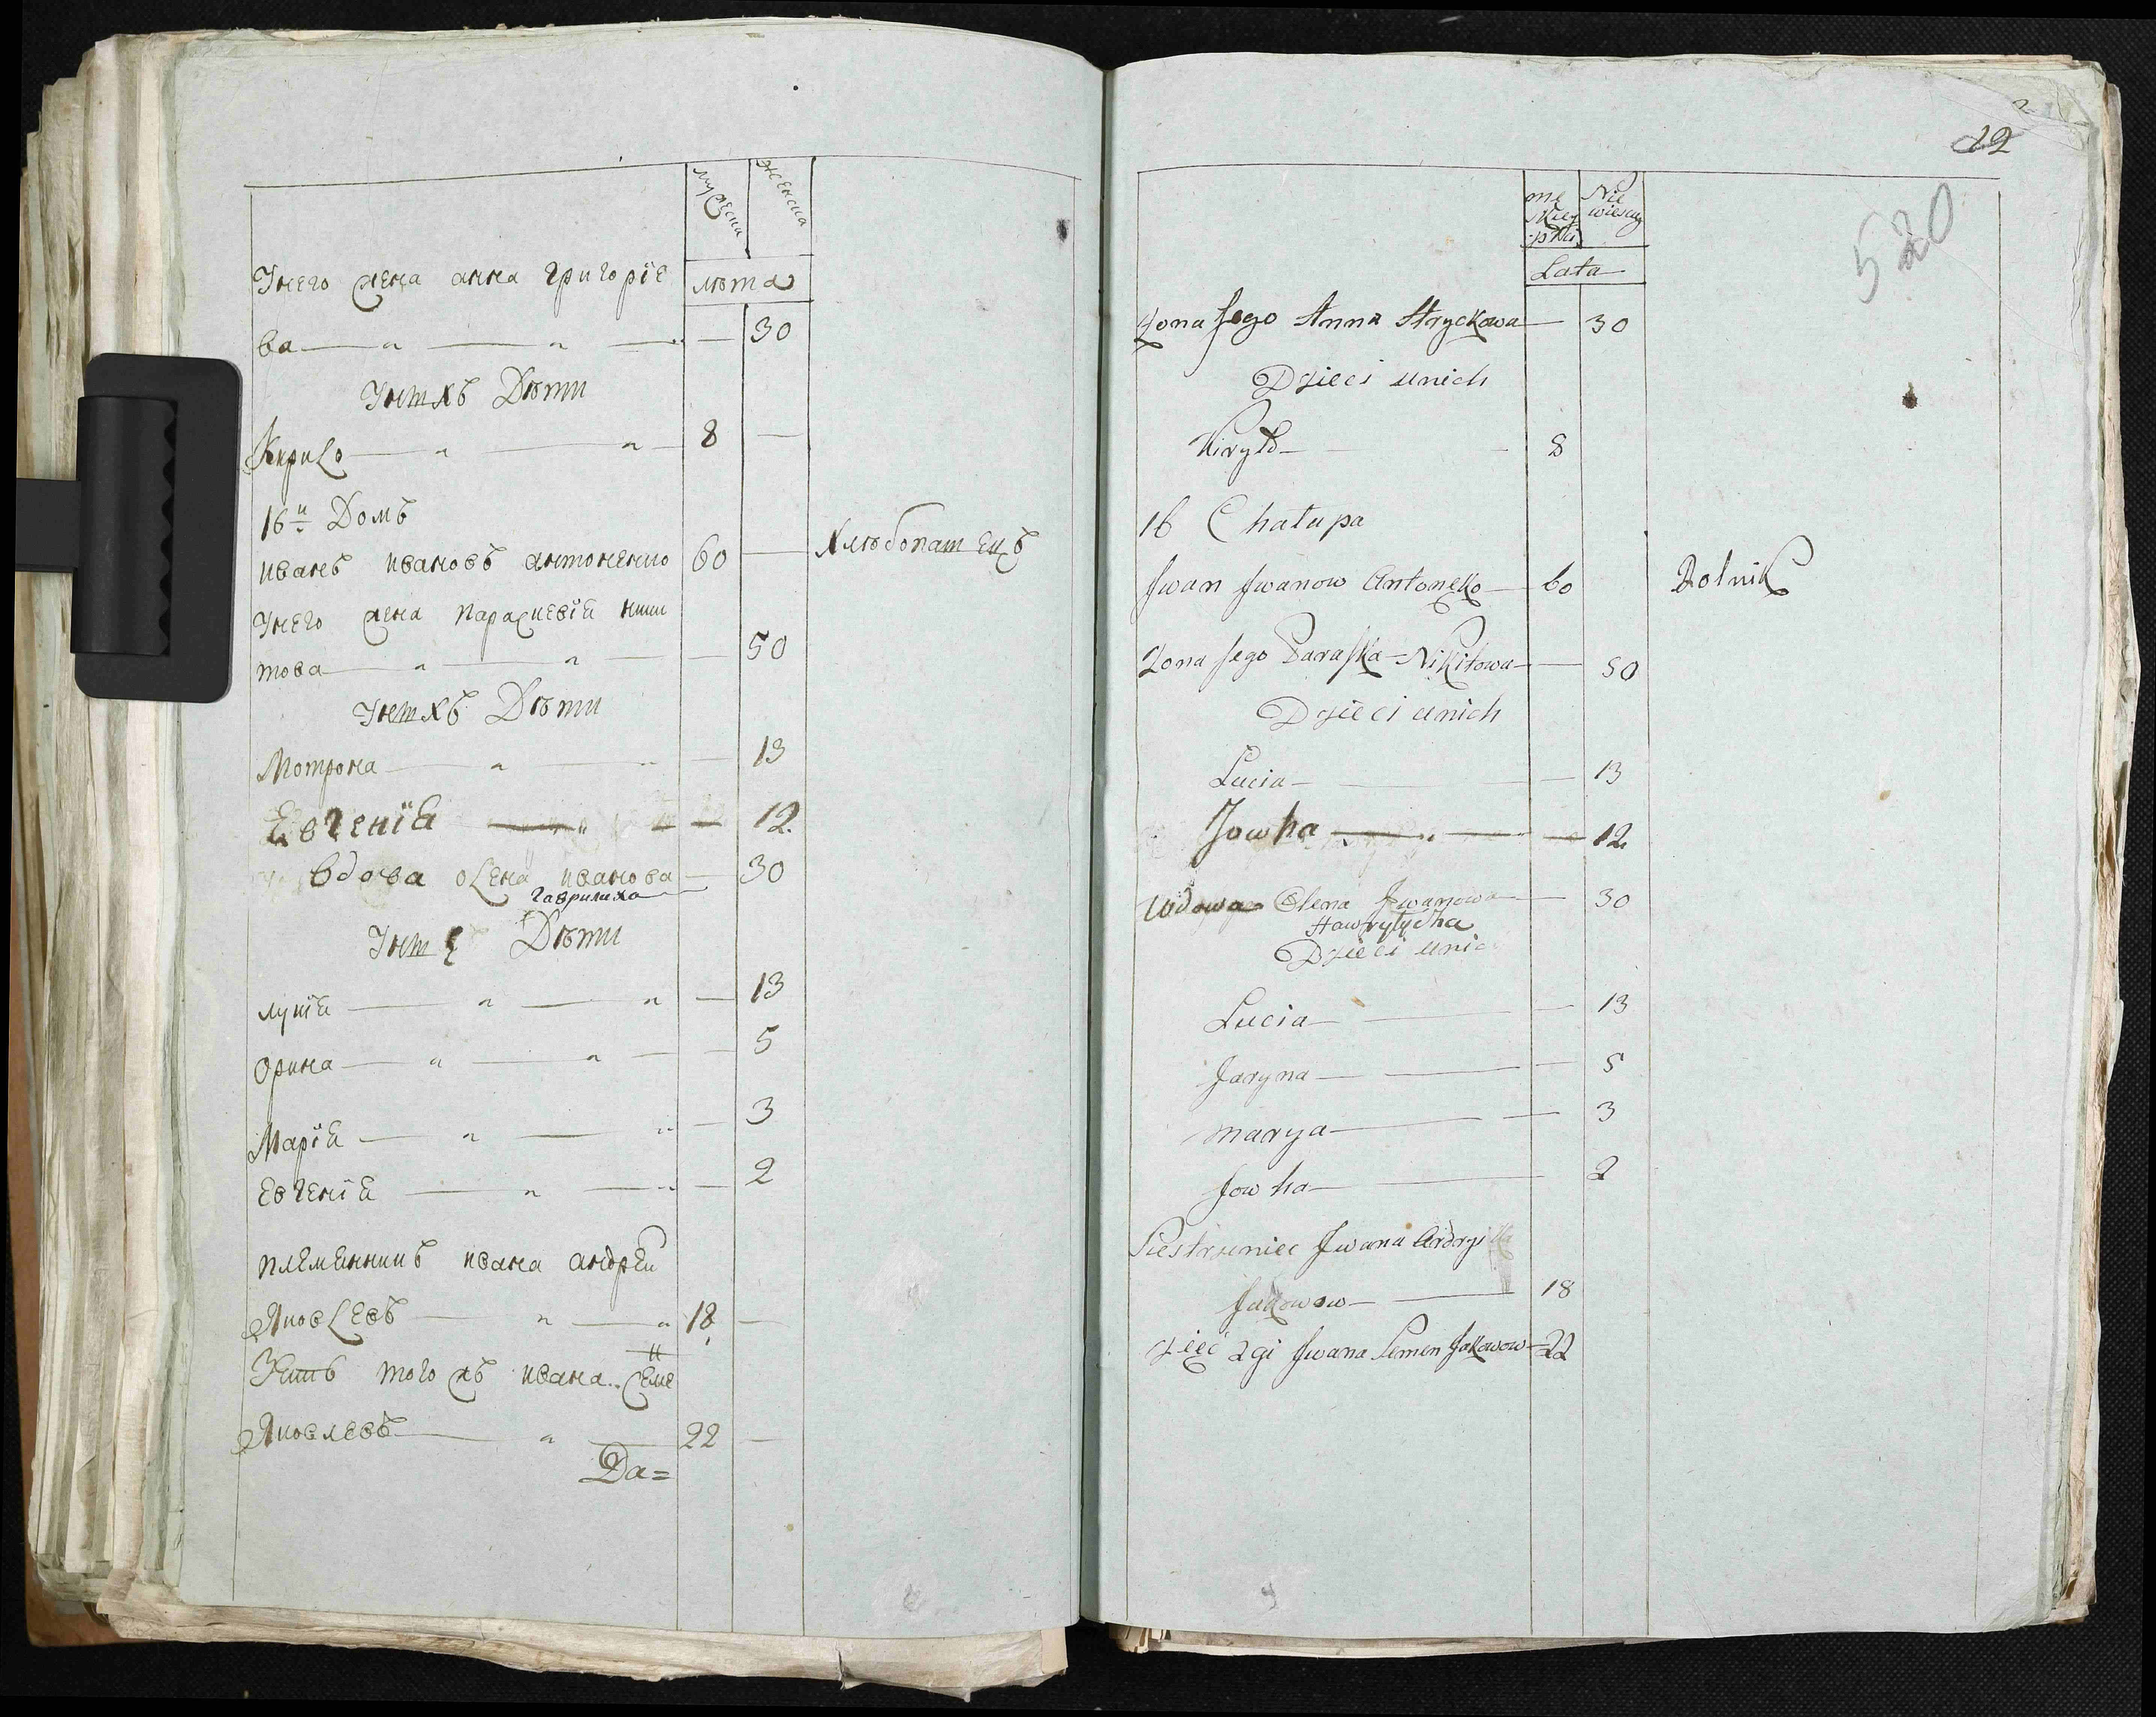 мужеска
женска
Унего жена анна Григоріе
лѣта
ва — " — " — — 30
Унихъ Дѣти
Кирило — " — " — 8 —
16й Домъ
иванъ ивановъ антоненко 60 — хлѣбопашецъ
Унего жена параскевія ники
това — " — " — — 50
Унихъ Дѣти
Мотрона — " — " — 13
Евгенія — " — — 12.
вдова олена иванова — 30
гаврилиха
Дѣти
луція — " — " — 13
Орина — " — " — 5
Марія — " — " — 3
Евгенія — " — " — 2
племенникъ ивана андрей
Яковлевъ — " — " 18 —
Зять того жъ ивана Семе
Яковлевъ — " — 22 —
Да=
22
520
Nie
wiescy
Lata
Żona Jego Anna Hryckowa — 30
Dzieci unich
Kiryło — 8
16 Chałupa
Jwan Jwanow Antonęko — 60 Rolnik
Żona Jego Paraska Nikitowa — 50
Dzieci unich
Lucia — 13
Jowha — " — 12.
Wdowa Elena Jwanowa — 30
Hawryłycha
Dzieci unich
Lucia — 13
Jaryna — 5
Marya — 3
Jowha — 2
Siestrzeniec Jwana
Jakowow — 18
Zięć 2gi Jwana Semen Jakowow — 22